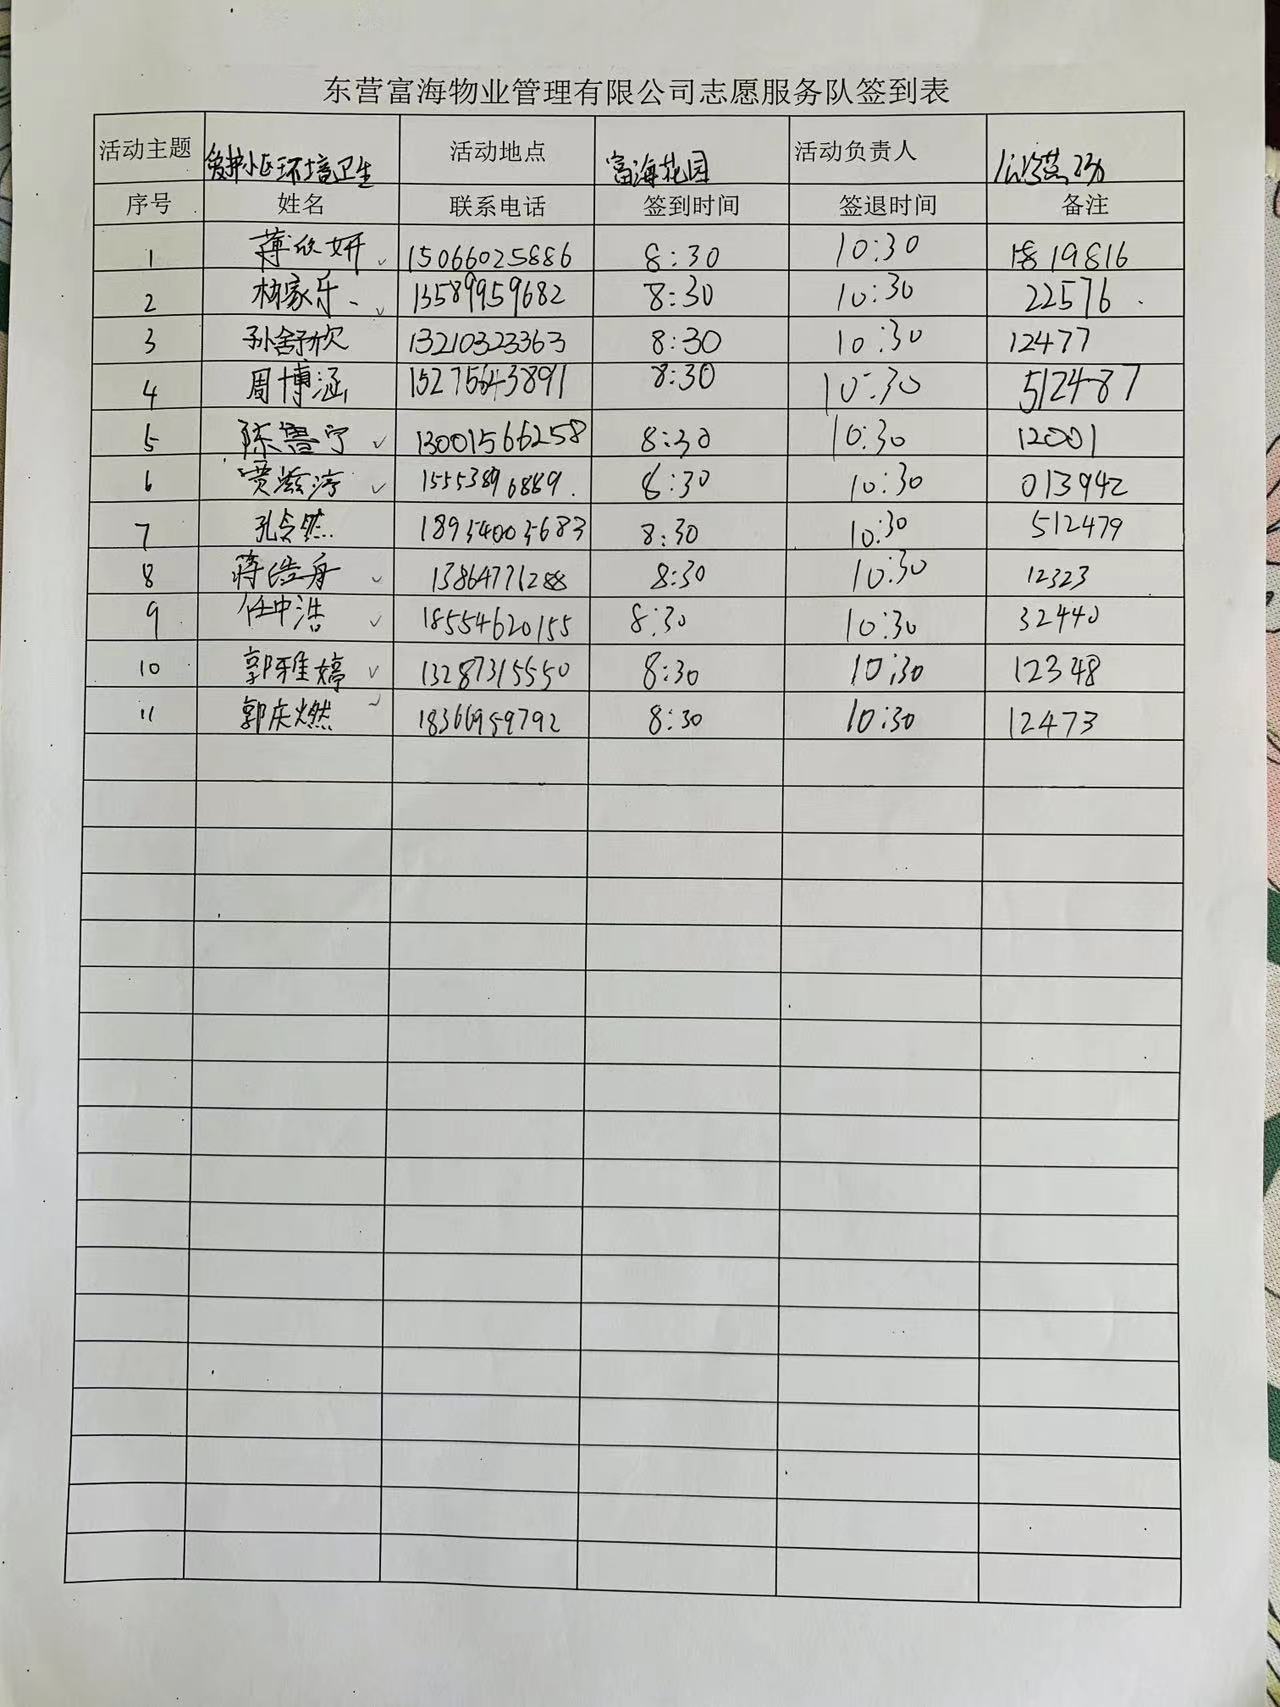 东营富海物业管理有限公司志愿服务队签到表
活动主题 爱护小区环境卫生 活动地点 富海花园 活动负责人
序号 姓名 联系电话 签到时间 签退时间 备注
1 薄欣妍 15066025886 8:30 10:30 1819816
2 杨家乐 13589959682 8:30 10:30 22576
3 孙舒欣 13210323363 8:30 10:30 12477
4 周博涵 15275643891 8:30 10:30 512487
5 陈鲁宁 13001566258 8:30 10:30 12001
6 贾滋淳 15553896889 8:30 10:30 013942
7 孔令然 18954003683 8:30 10:30 512479
8 蒋皓舟 13864771288 8:30 10:30 12323
9 任中浩 18554620155 8:30 10:30 32440
10 郭雅婷 13287315550 8:30 10:30 12348
11 郭庆燃 18366959792 8:30 10:30 12473